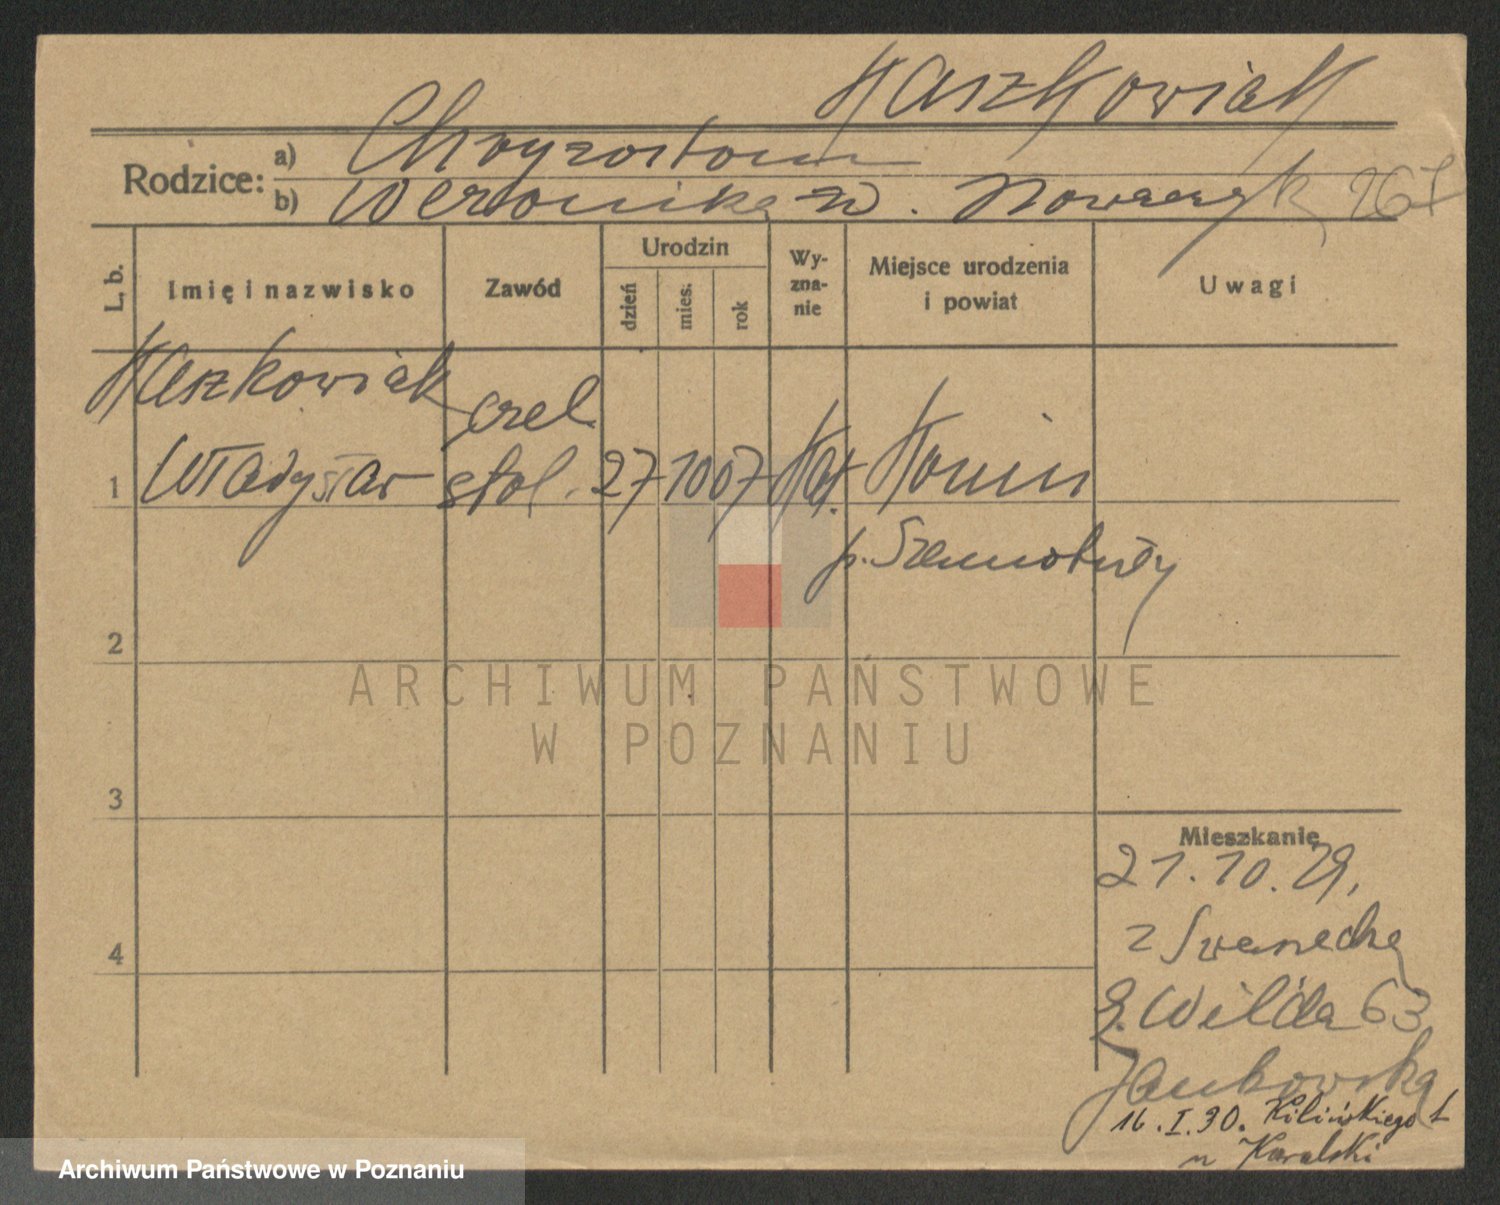 Kaszkowiak
Rodzice:
a) Chryzostom
b) Weronika z d. Nowaczyk
L. b.
Imię i nazwisko
Zawód
Urodzin
dzień
mies.
rok
Wy-
zna-
nie
Miejsce urodzenia
i powiat
Uwagi
Kaszkowiak
czel.
1 Władysław stol. 27 10 07 Kat. Konin
p. Szamotuły
2
3
4
ARCHIWUM PAŃSTWOWE
W POZNANIU
Mieszkanie
21.10.29.
z
G. Wilda 63
Jankowska
16.I.30. Kilińskiego 1
u Kowalski
Archiwum Państwowe w Poznaniu